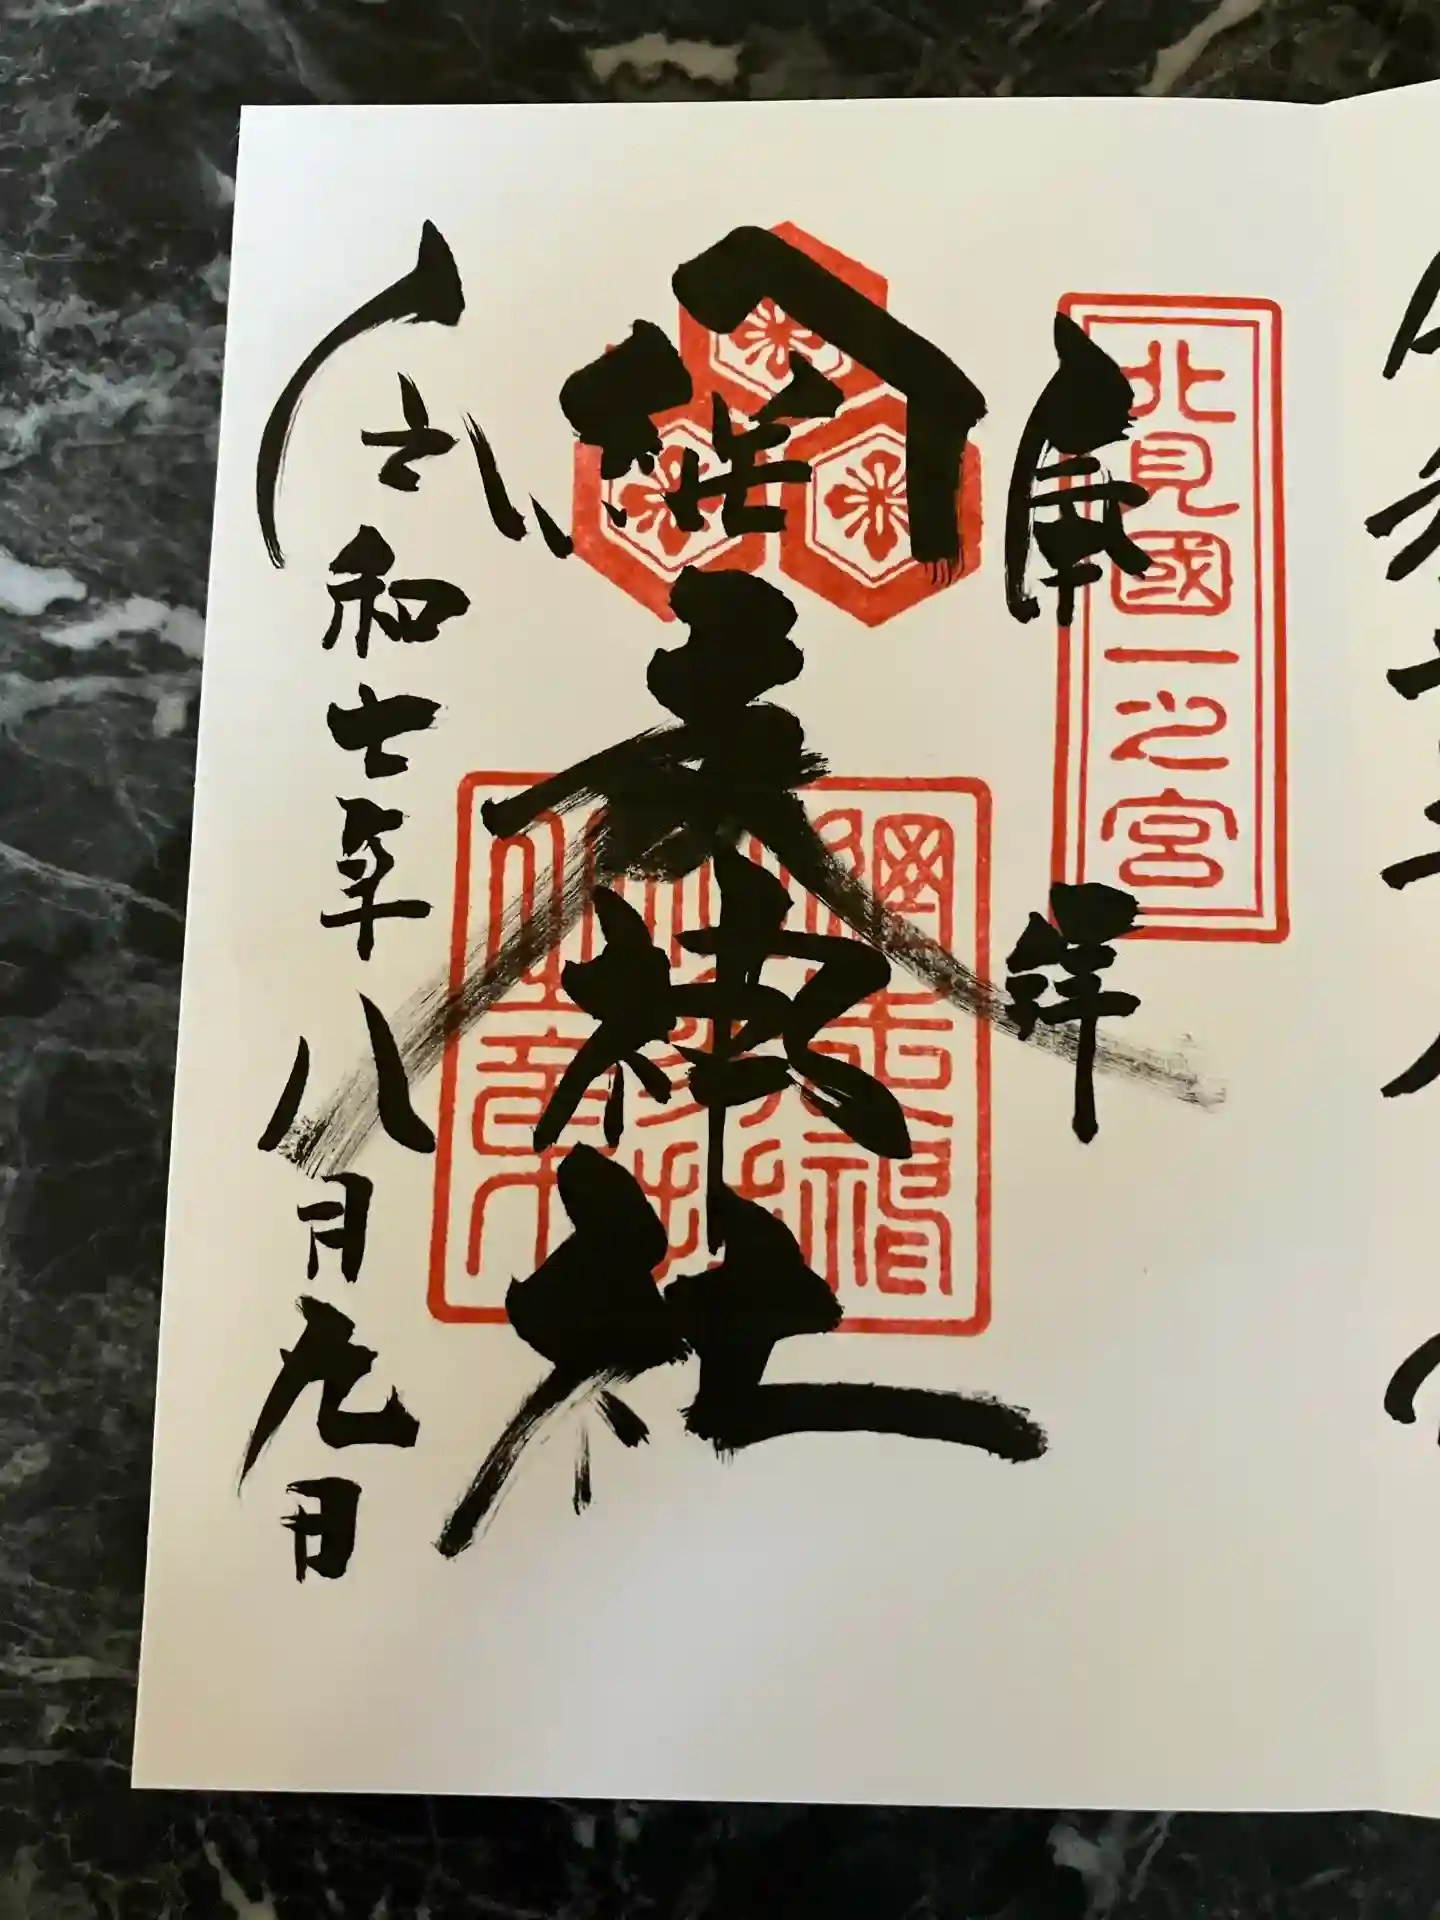 北見國一之宮
奉拝
網走神社
網走神
社参拝
之章
令和七年八月九日